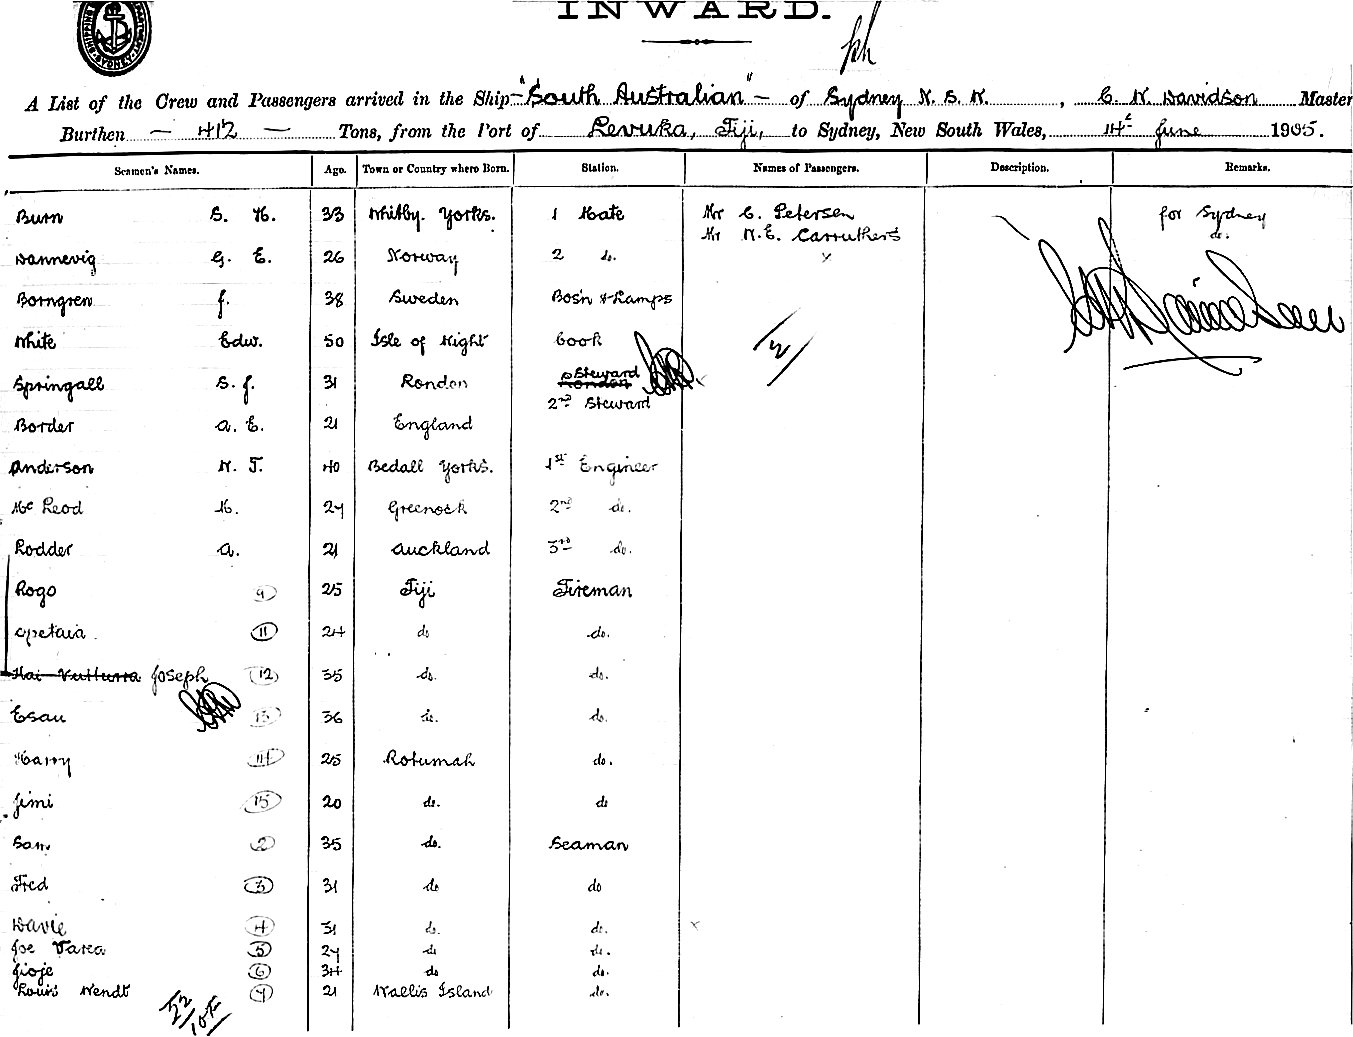 INWARD.
A List of the Crew and Passengers arrived in the Ship "South Australian" of Sydney N.S.W., C. W. Davidson Master
Burthen 412 Tons, from the Port of Levuka, Fiji, to Sydney, New South Wales, 14th June 1905.
Seamen's Names. Age. Town or Country where Born. Station. Names of Passengers. Description. Remarks.
Burn S. H. 33 Whitby. Yorks. 1 Mate Mr C. Petersen for Sydney
Mr W. E. Carruthers do.
Dannevig G. E. 26 Norway 2 do.
Borngren J. 38 Sweden Bosn & Lamps
White Edw. 50 Isle of Wight Cook
Springall S. J. 31 London Steward
2nd Steward
Border A. E. 21 England
Anderson W. J. 40 Bedall Yorks. 1st Engineer
Mc Leod K. 27 Greenock 2nd do.
Lodder A. 21 Auckland 3rd do.
Rogo 9 25 Fiji Fireman
Apetaia 11 24 do do.
Joseph 12 35 do. do.
Esau 13 36 do. do.
Harry 14 25 Rotumah do.
Jimi 15 20 do. do
Sam 2 35 do. Seaman
Fred 3 31 do do
Davie 4 31 do. do.
Joe Varea 5 27 do do.
Jioje 6 34 do do.
Louis Wendt 7 21 Wallis Island do.